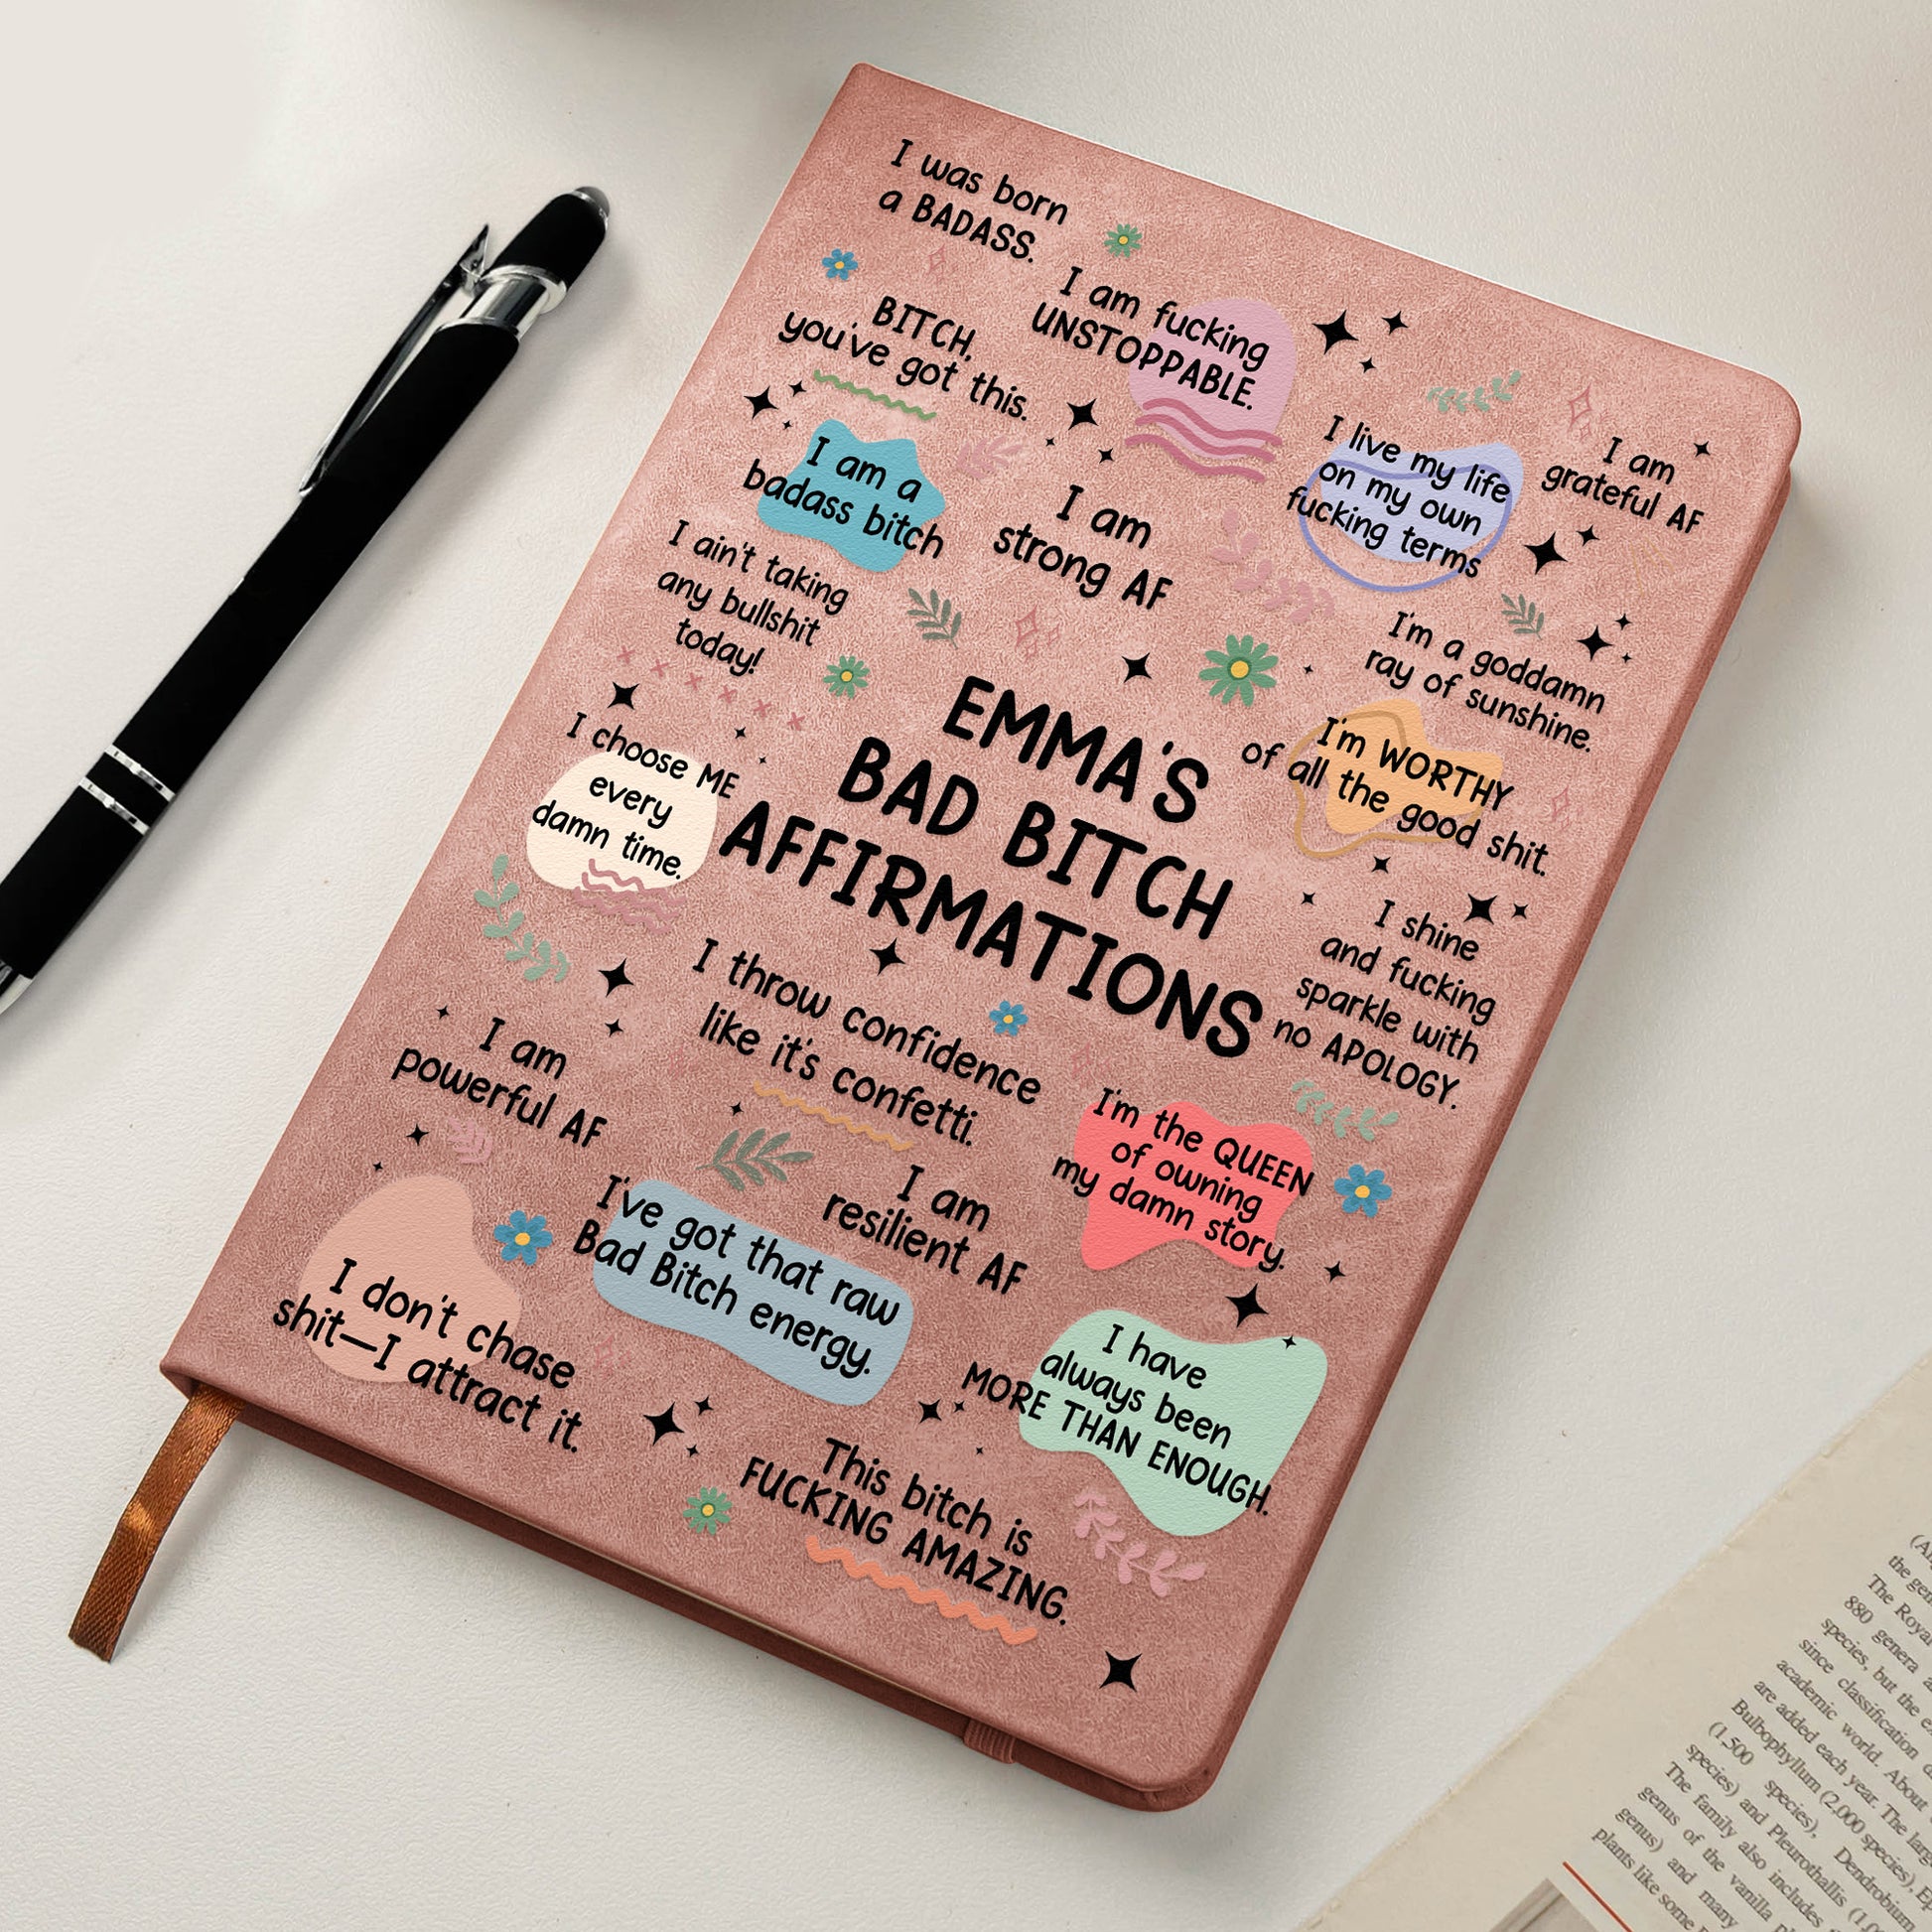 I was born
a BADASS.
I am fucking
UNSTOPPABLE.
BITCH,
you've got this.
I am a
badass bitch
I am
strong AF
I live my life
on my own
fucking terms
I am
grateful AF
I ain't taking
any bullshit
today!
I'm a goddamn
ray of sunshine.
EMMA'S
BAD BITCH
AFFIRMATIONS
I'm WORTHY
of all the good shit.
I choose ME
every
damn time.
I shine
and fucking
sparkle with
no APOLOGY.
I throw confidence
like it's confetti.
I am
powerful AF
I'm the QUEEN
of owning
my damn story.
I am
resilient AF
I've got that raw
Bad Bitch energy.
I don't chase
shit—I attract it.
I have
always been
MORE THAN ENOUGH.
This bitch is
FUCKING AMAZING.
the
The Royal
880 genera
species, but the
since classification
academic world.
are added each year. The
Bulbophyllum (2,000 species),
(1,500 species), Dendrobium
species) and Pleurothallis
The family also includes
genus of the vanilla
genus) and many
plants like some